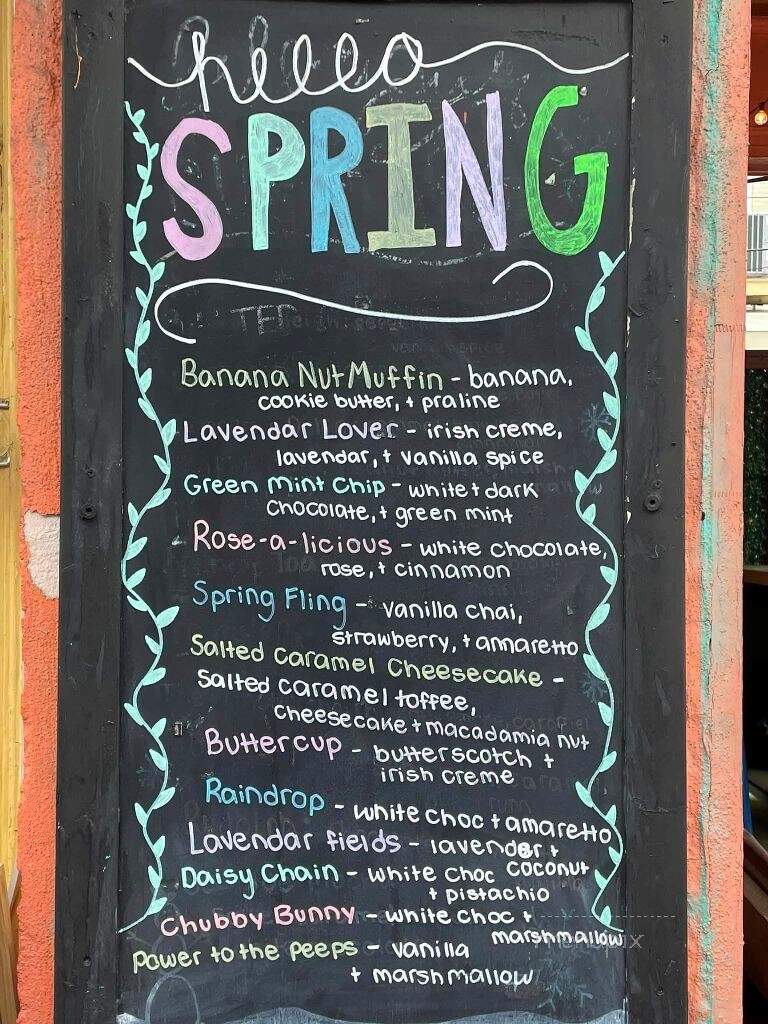 hello
SPRING
Banana Nut Muffin - banana,
cookie butter, + praline
Lavendar Lover - irish creme,
lavendar, + vanilla spice
Green Mint Chip - white + dark
Chocolate, + green mint
Rose-a-licious - white chocolate,
rose, + cinnamon
Spring Fling - vanilla chai,
strawberry, + amaretto
Salted Caramel Cheesecake -
Salted caramel toffee,
cheesecake + macadamia nut
Buttercup - butterscotch +
irish creme
Raindrop - white choc + amaretto
Lavendar fields - lavender +
coconut
Daisy Chain - white choc
+ pistachio
Chubby Bunny - white choc +
marshmallow
Power to the peeps - vanilla
+ marshmallow